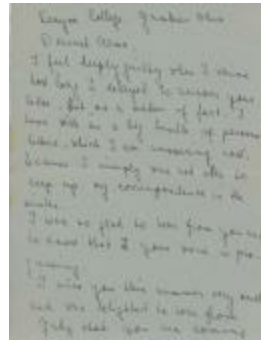 Kenyon College Gambier Ohio
Dearest
I feel deeply guilty when I
how long I delayed to answer your
letter. But as a matter of fact
with a big bundle of personal
letters which I am answering now,
because I simply was not able to
keep up my correspondence in the
I was so glad to hear from you
to know that your work is pro-
gressing.
I miss you this summer very much
and was delighted to hear from
that you are coming